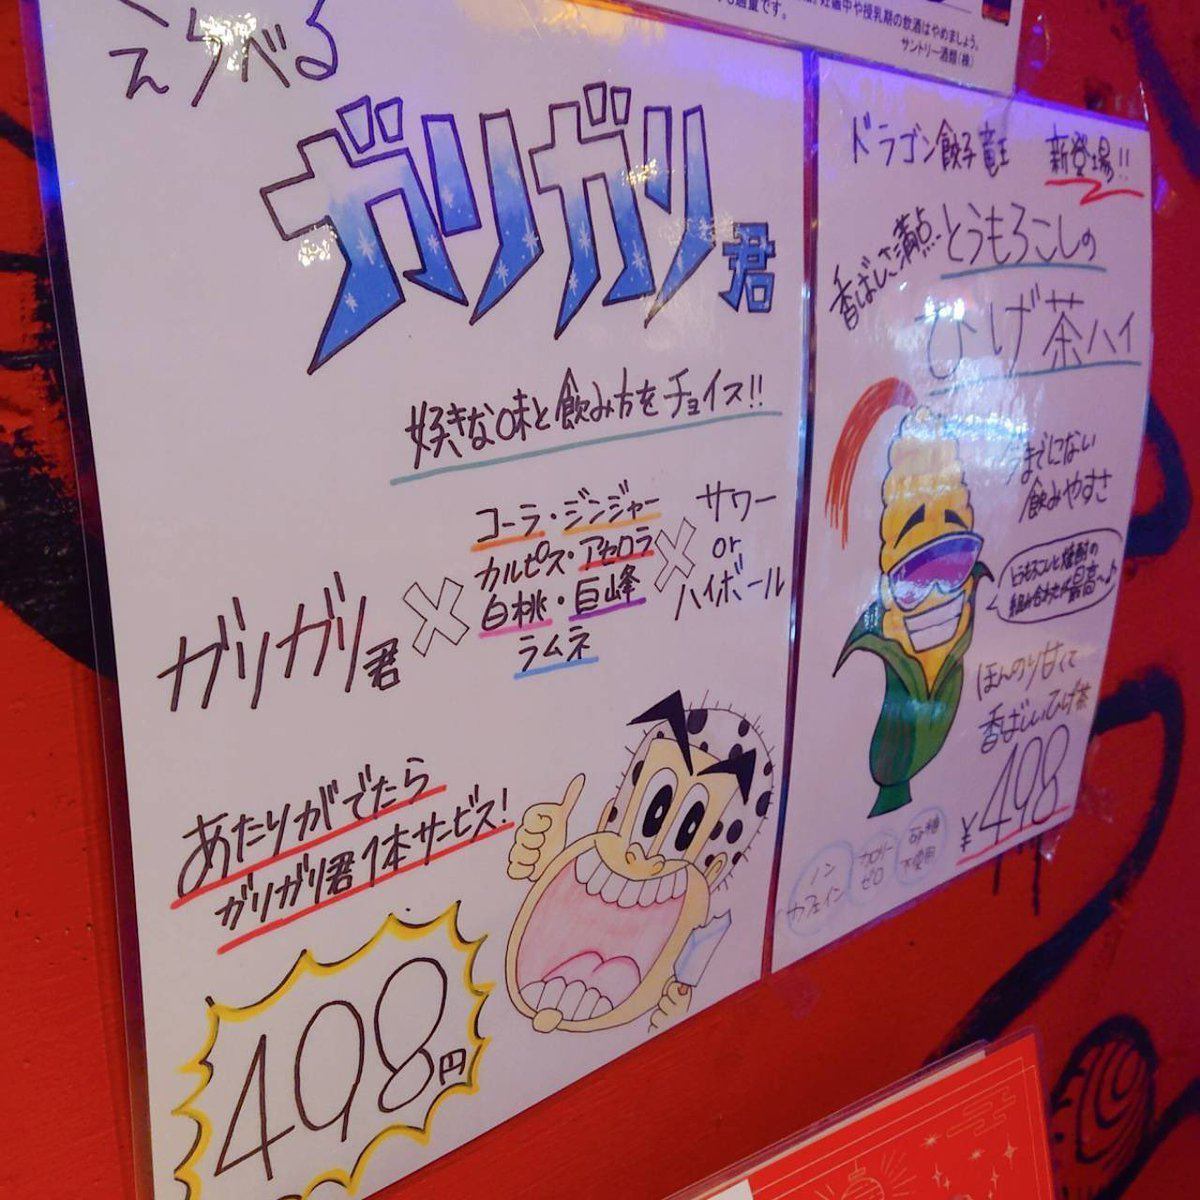 妊娠中や授乳期の飲酒はやめましょう。
サントリー酒類(株)
えらべる
ガリガリ君
好きな味と飲み方をチョイス!!
ガリガリ君
×
コーラ・ジンジャー
カルピス・アセロラ
白桃・巨峰
ラムネ
×
サワー
or
ハイボール
あたりがでたら
ガリガリ君1本サービス!
498円
ドラゴン餃子竜王 新登場!!
香ばしさ満点
とうもろこしの
ひげ茶ハイ
今までにない
飲みやすさ
とうもろこしと焼酎の
組み合わせが最高〜♪
ほんのり甘くて
香ばしいひげ茶
¥498
ノン
カフェイン
カロリー
ゼロ
砂糖
不使用